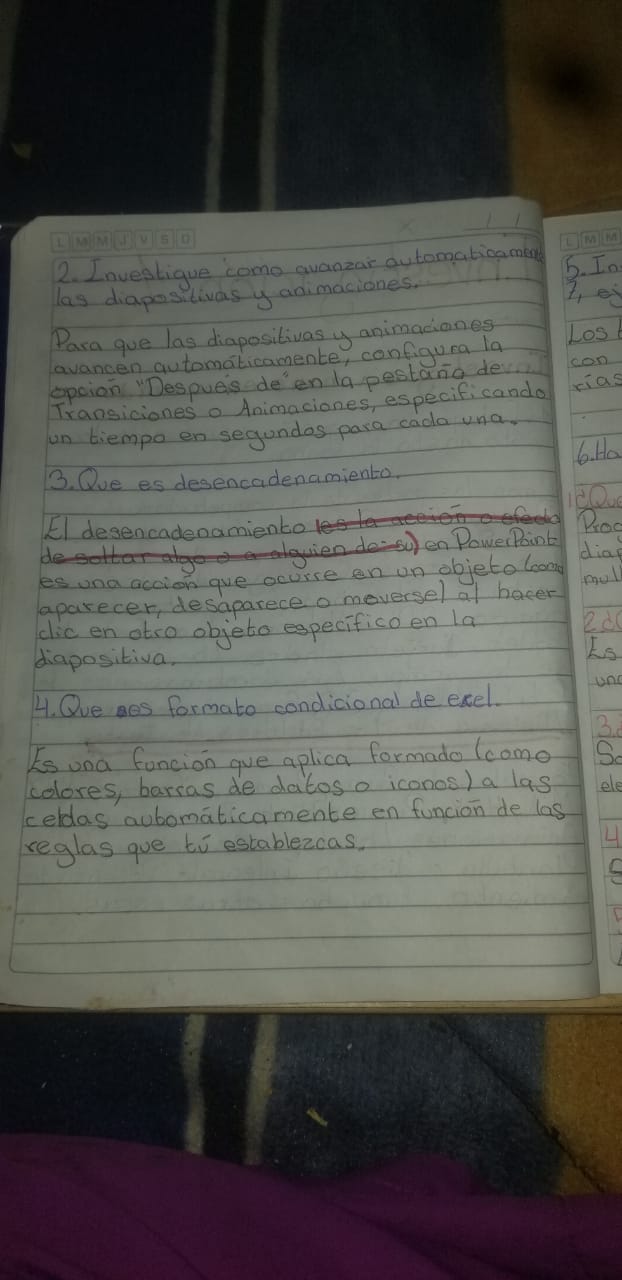 L M M J V S D
2. Investigue como avanzar automaticamente
las diapositivas y animaciones.
Para que las diapositivas y animaciones
avancen automáticamente, configura la
opción "Después de" en la pestaña de
Transiciones o Animaciones, especificando
un tiempo en segundos para cada una.
3. Que es desencadenamiento.
El desencadenamiento (es la acción o efecto
de soltar algo o a alguien de su) en PowerPoint
es una acción que ocurre en un objeto (como
aparecer, desaparece o moverse) al hacer
clic en otro objeto específico en la
diapositiva.
4. Que es formato condicional de exel.
Es una función que aplica formado (como
colores, barras de datos o iconos) a las
celdas automáticamente en función de las
reglas que tú establezcas.
L M M
5. In
Los
con
rías
6. Ha
1¿Que
Proc
diap
mul
2¿
Es
una
3.
So
ele
4